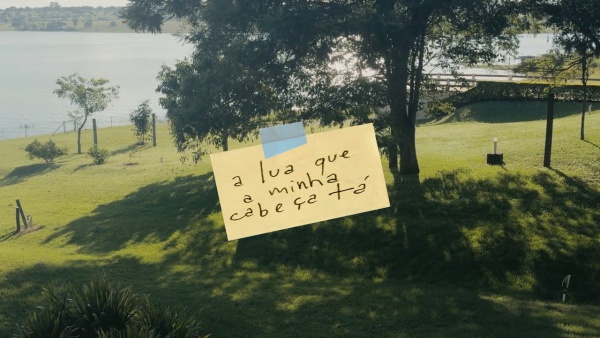 a lua que
a minha
cabeça tá